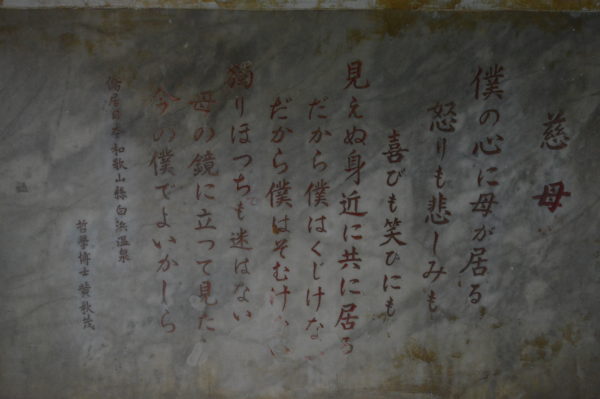 慈母
僕の心に母が居る
怒りも悲しみも
喜びも笑ひにも
見えぬ身近に共に居る
だから僕はくじけない
だから僕はそむけない
獨りぼつちも迷はない
母の鏡に立つて見た
今の僕でよいかしら
僑居日本和歌山縣白浜温泉
哲學博士 黄秋茂